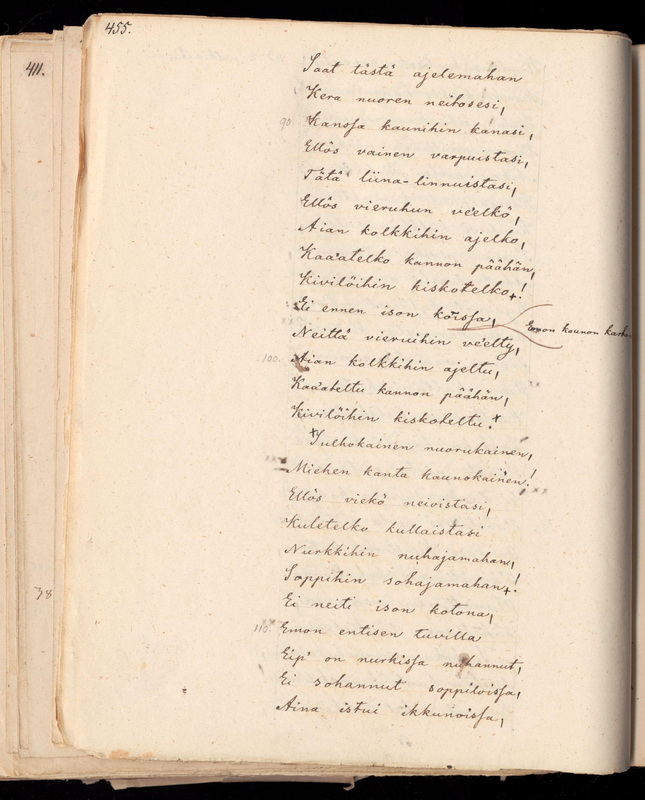 455.
411.
Saat tästä ajelemahan
Kera nuoren neitosesi,
90. Kanssa kaunihin kanasi,
Ellös vainen varpuistasi,
Tätä liina-linnuistasi,
Ellös vieruhun veelkö,
Aian kolkkihin ajelko,
Kaaatelko kannon päähän,
Kivilöihin kiskotelko!
Ei ennen ison koissa,
Emon kannon
Neittä vieruihin veelty,
100. Aian kolkkihin ajeltu,
Kaaateltu kannon päähän,
Kivilöihin kiskoteltu.
Sulhokainen nuorukainen,
Miehen kanta kaunokainen!
Ellös viekö neioistasi,
Kuletelko kullaistasi
Nurkkihin nuhajamahan,
Soppihin sohajamahan!
38
Ei neiti ison kotona,
110. Emon entisen tuvilla
Eip' on nurkissa nuhannut,
Ei sohannut soppiloissa,
Aina istui ikkunoissa,